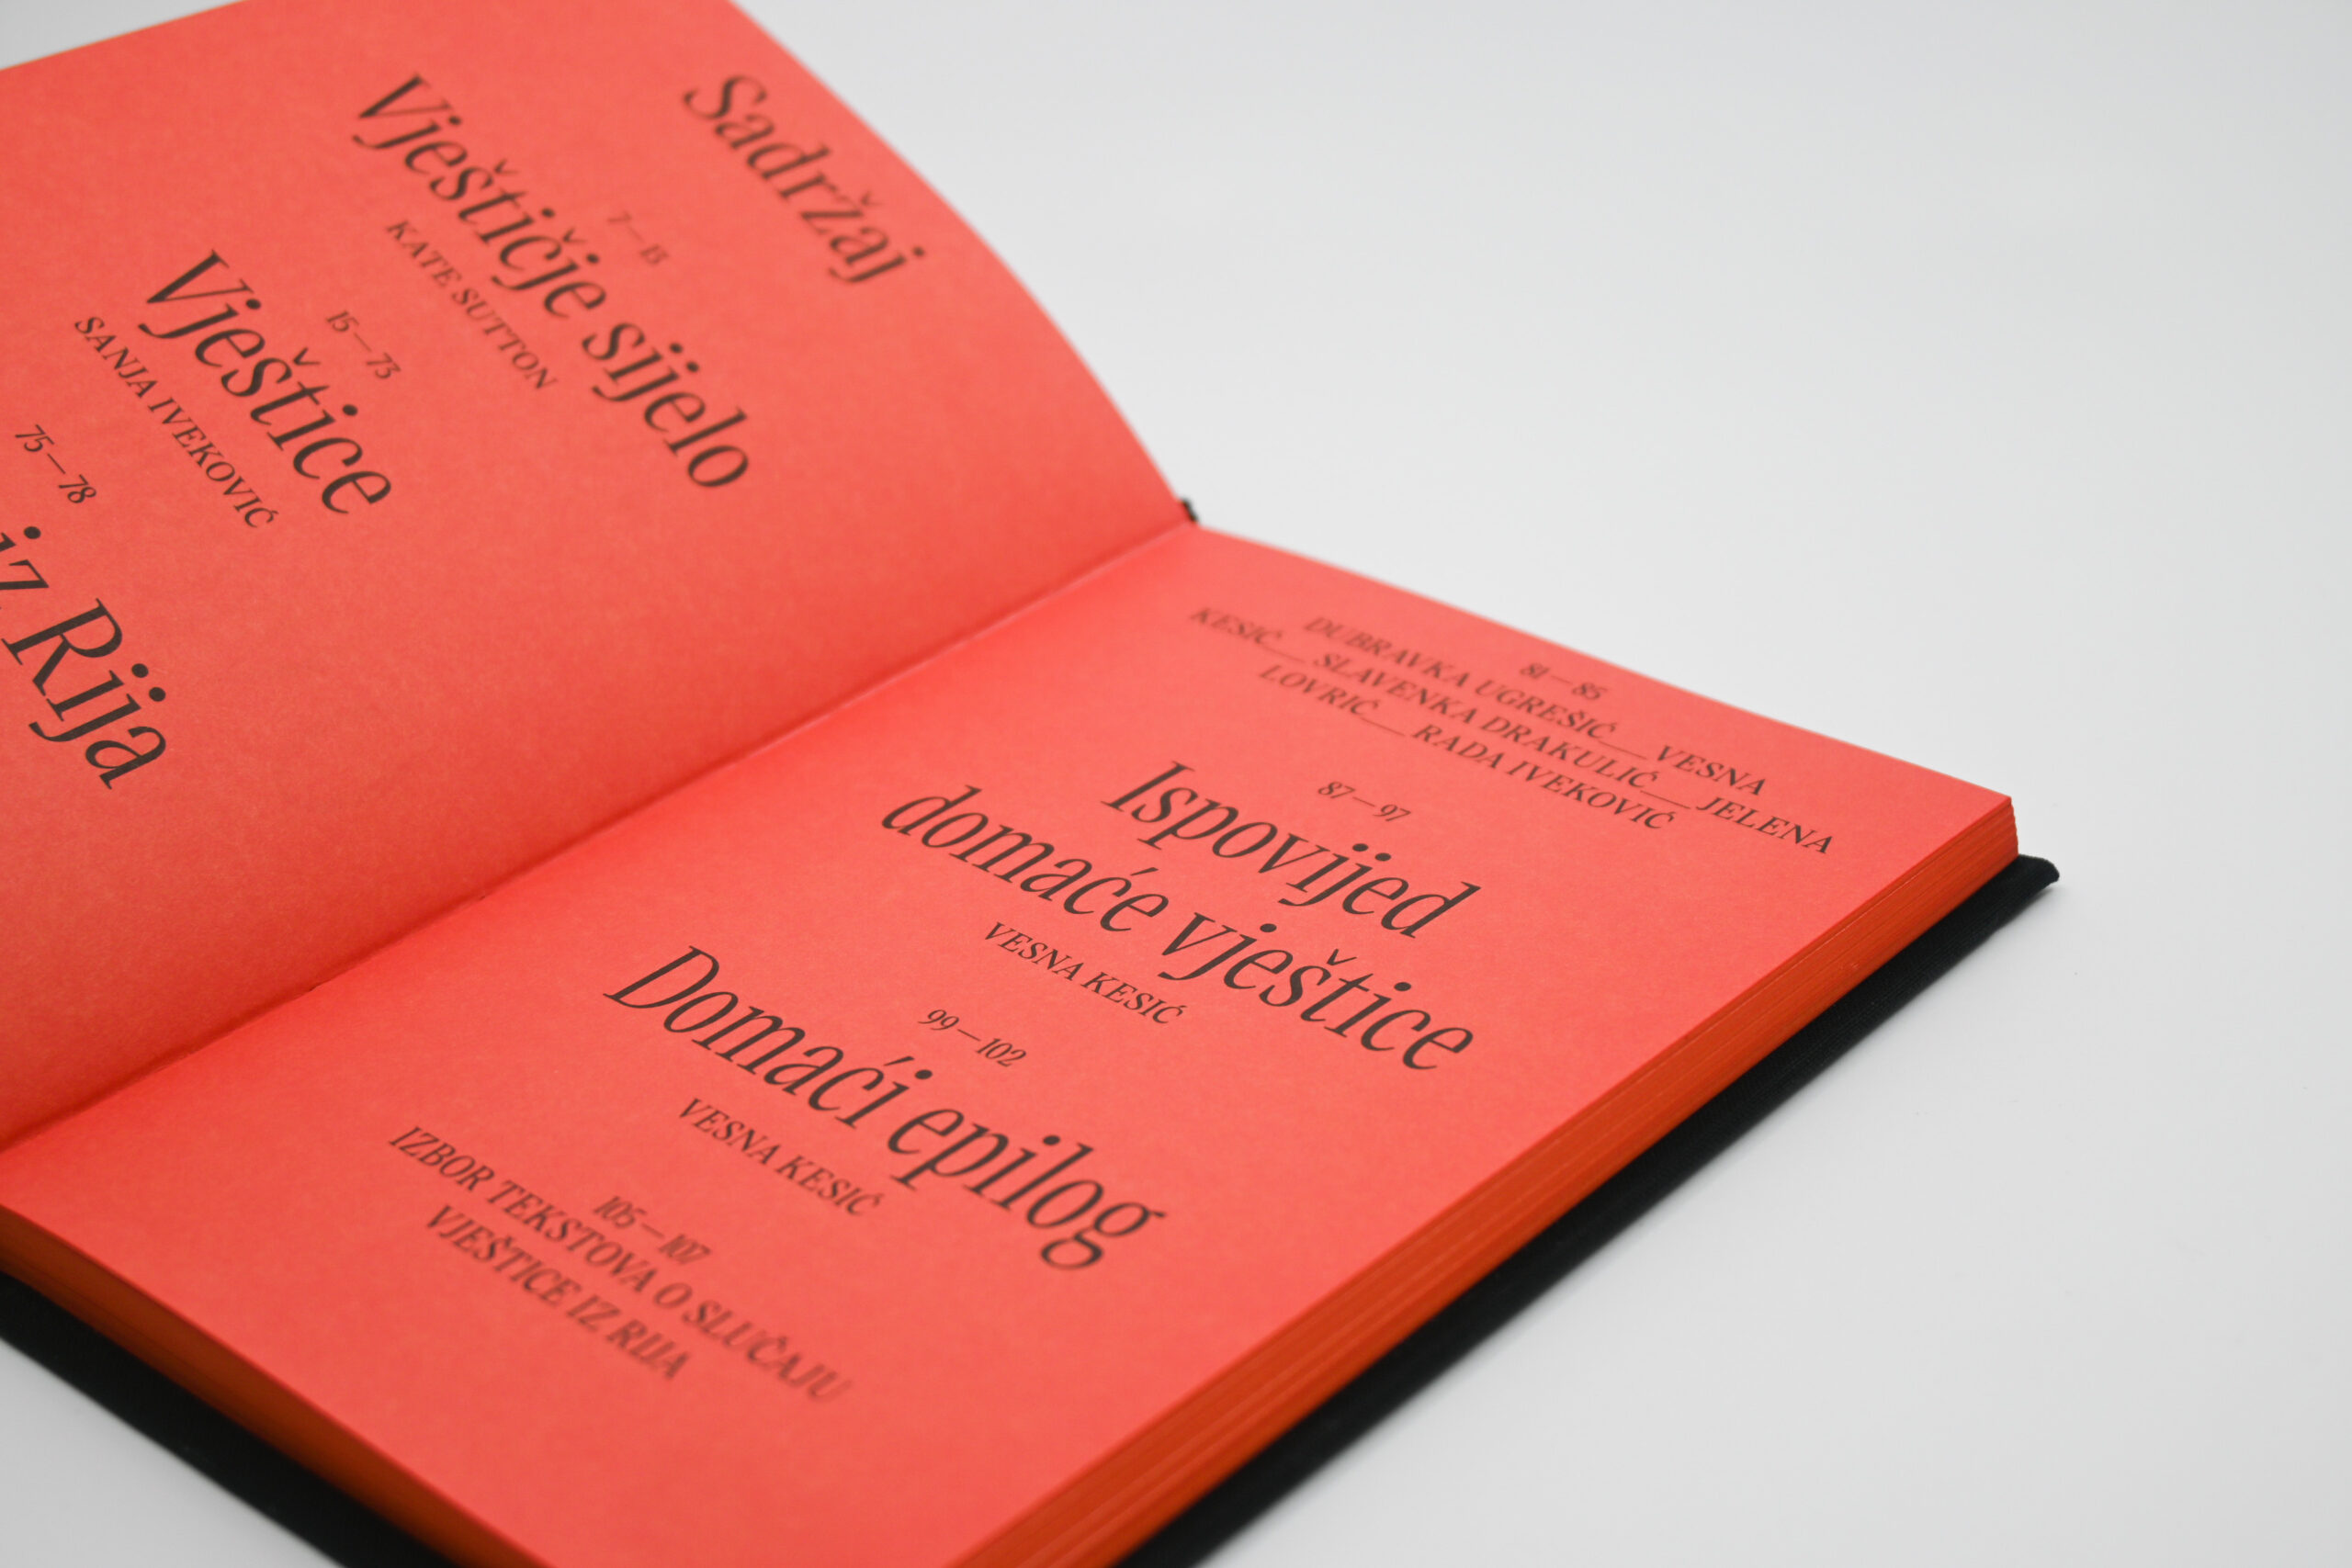 Sadržaj
7—13
Vještičje sijelo
KATE SUTTON
15—73
Vještice
SANJA IVEKOVIĆ
75—78
iz Rija
81—85
DUBRAVKA UGREŠIĆ__ VESNA
KESIĆ__ SLAVENKA DRAKULIĆ__ JELENA
LOVRIĆ__ RADA IVEKOVIĆ
87—97
Ispovijed
domaće vještice
VESNA KESIĆ
99—102
Domaći epilog
VESNA KESIĆ
105—107
IZBOR TEKSTOVA O SLUČAJU
VJEŠTICE IZ RIJA